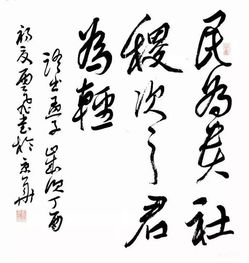 民為貴社
稷次之君
為輕
語出孟子歲次丁酉
初夏雲飛書於京華